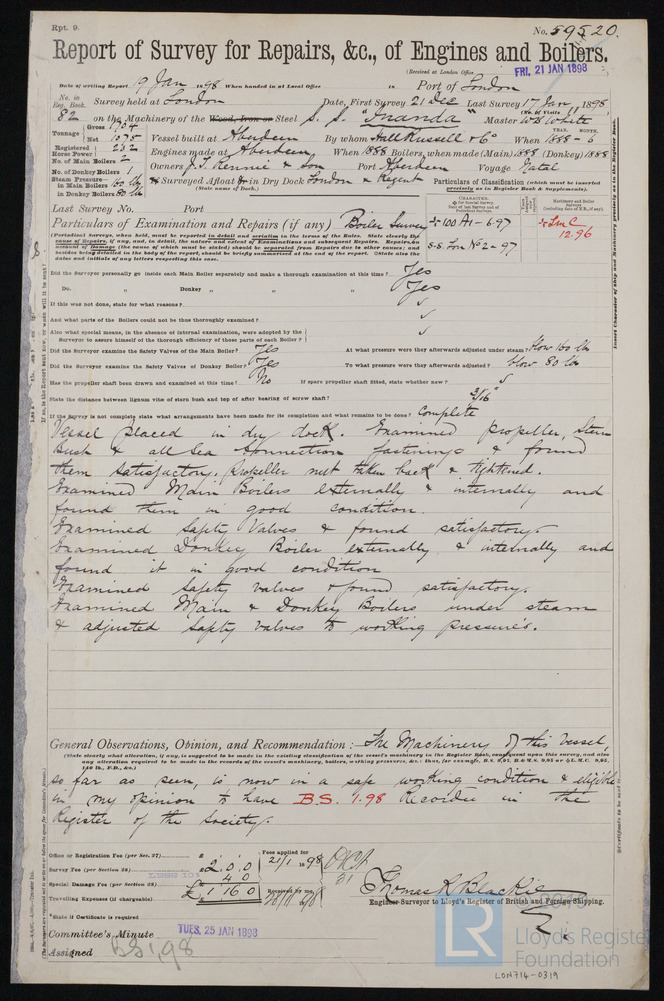 Rpt. 9.
No. 59520.
Report of Survey for Repairs, &c., of Engines and Boilers.
(Received at London Office
FRI. 21 JAN 1898
Date of writing Report 19 Jan 1898 When handed in at Local Office in Port of London
No. in Reg. Book. Survey held at London Date, First Survey 21 Dec Last Survey 17 Jan 1898
(No. of Visits 11)
82 on the Machinery of the Wood, Iron or Steel S.S. "Inanda" Master W.B. White
Tonnage Gross 1904
Net 1075
Vessel built at Aberdeen By whom Hall Russell & Co When 1888-6
YEAR. MONTH.
Registered Horse Power 232
Engines made at Aberdeen When 1888 Boilers, when made (Main) 1888 (Donkey) 1888
No. of Main Boilers 2
Owners J.T. Rennie & Son Port Aberdeen Voyage Natal
No. of Donkey Boilers 1
Steam Pressure in Main Boilers 160 lbs
in Donkey Boilers 80 lbs
Surveyed Afloat & in Dry Dock London & Regent
(State name of Dock.)
Particulars of Classification (which must be inserted precisely as in Register Book & Supplements).
Last Survey No. Port
Particulars of Examination and Repairs (if any) Boiler Survey
100 A1-6.97
S.S. Lon No 2-97
LMC
12.96
Did the Surveyor personally go inside each Main Boiler separately and make a thorough examination at this time? Yes
Do. " Donkey " " " Yes
If this was not done, state for what reasons?
And what parts of the Boilers could not be thus thoroughly examined?
Also what special means, in the absence of internal examination, were adopted by the
Surveyor to assure himself of the thorough efficiency of those parts of each Boiler?
Did the Surveyor examine the Safety Valves of the Main Boiler? Yes At what pressure were they afterwards adjusted under steam? blow 160 lb
Did the Surveyor examine the Safety Valves of Donkey Boiler? Yes To what pressure were they afterwards adjusted? blow 80 lb
Has the propeller shaft been drawn and examined at this time? No If spare propeller shaft fitted, state whether new?
State the distance between lignum vitæ of stern bush and top of after bearing of screw shaft? 3/16"
If the Survey is not complete state what arrangements have been made for its completion and what remains to be done? Complete
Vessel placed in dry dock. Examined propeller, stern
bush & all sea connection fastenings & found
them satisfactory. Propeller nut taken back & tightened.
Examined Main Boilers externally & internally and
found them in good condition.
Examined safety valves & found satisfactory.
Examined Donkey Boiler externally & internally and
found it in good condition
Examined safety valves & found satisfactory.
Examined Main & Donkey Boilers under steam
& adjusted safety valves to working pressures.
General Observations, Opinion, and Recommendation:— The Machinery of this vessel,
so far as seen, is now in a safe working condition & eligible
in my opinion to have B.S. 1.98 Recorded in the
Register of the Society.
Office or Registration Fee (per Sec. 27)
Fees applied for 21/1 1898
Survey Fee (per Section 28) 2.0.0
Special Damage Fee (per Section 28) 4.0
£ 1.16.0
Travelling Expenses (if chargeable)
Received by me,
Thomas R Blackie
Engineer-Surveyor to Lloyd's Register of British and Foreign Shipping.
State if Certificate is required
Committee's Minute TUES. 25 JAN 1898
Assigned BS 1,98
LR
Lloyd's Register
Foundation
LON714-0319